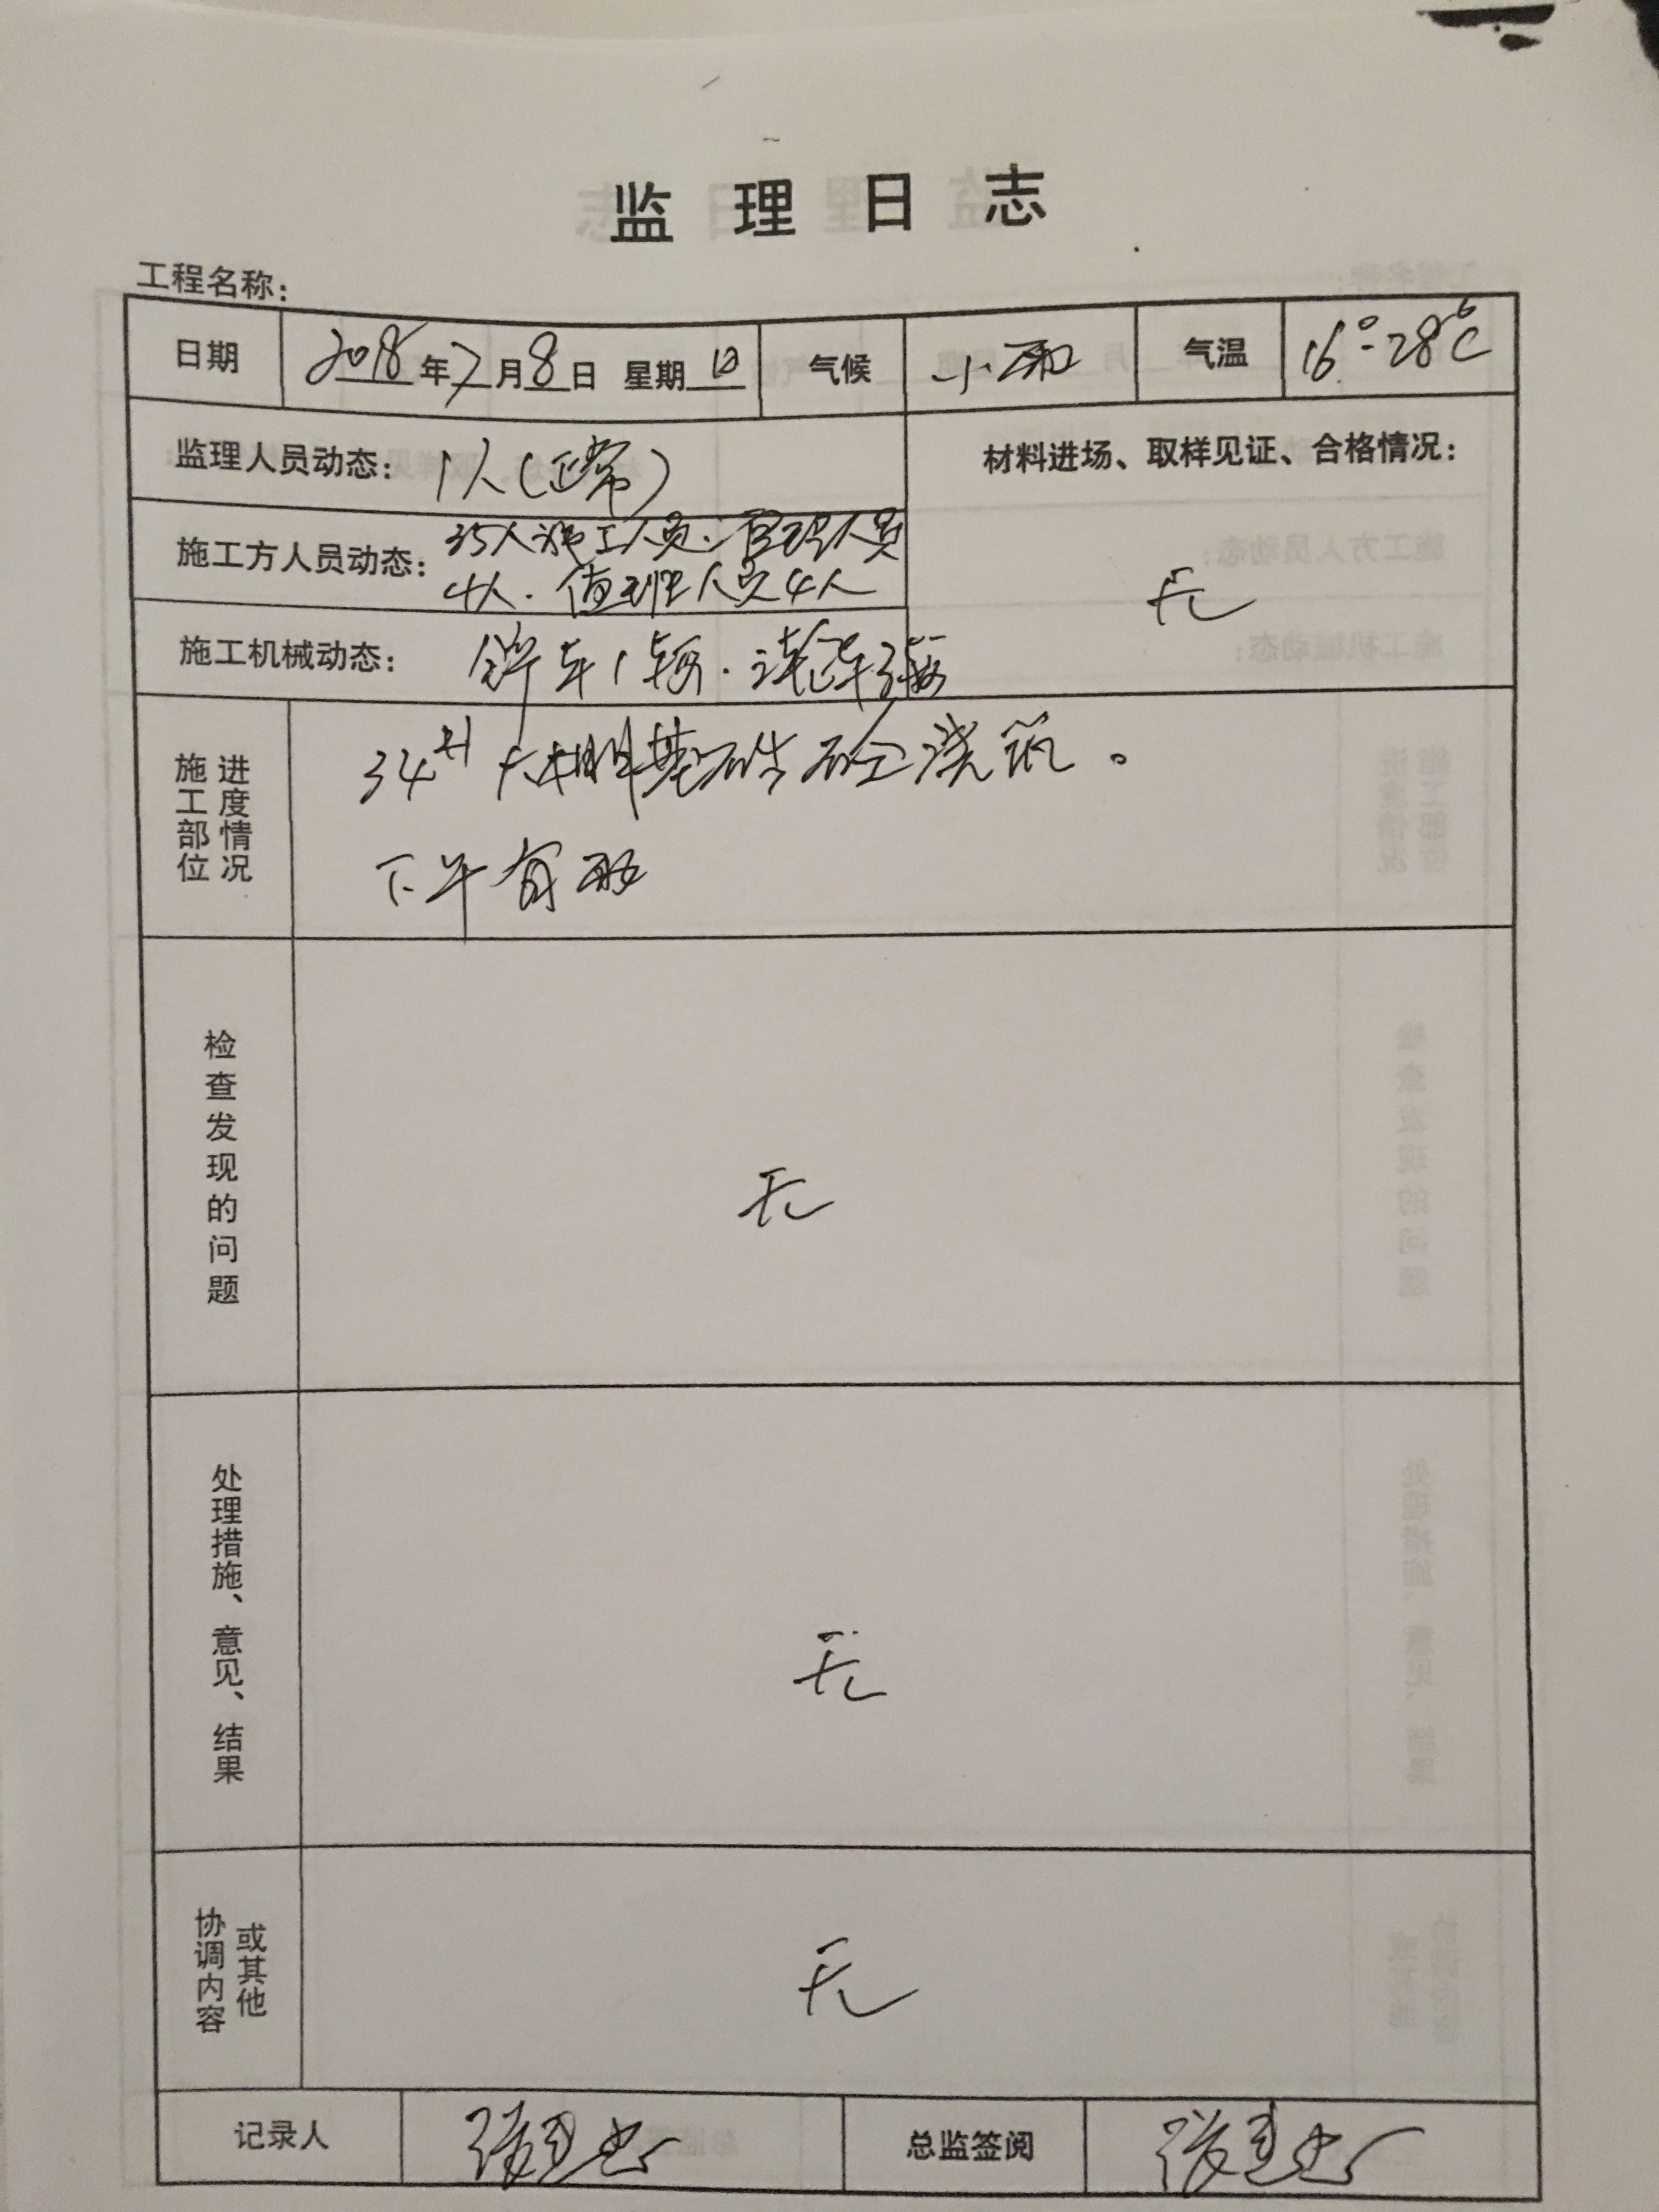 监理日志
工程名称：
日期 2018年7月8日 星期日 气候 小雨 气温 16°-28℃
监理人员动态： 1人（正常）
材料进场、取样见证、合格情况：
无
施工方人员动态： 35人施工人员、管理人员
4人．值班人员4人
施工机械动态： 车1辆．车3辆
施工部位
进度情况
34# 基础砼浇筑。
下午有雨
检查发现的问题
无
处理措施、意见、结果
无
协调内容
或其他
无
记录人 总监签阅